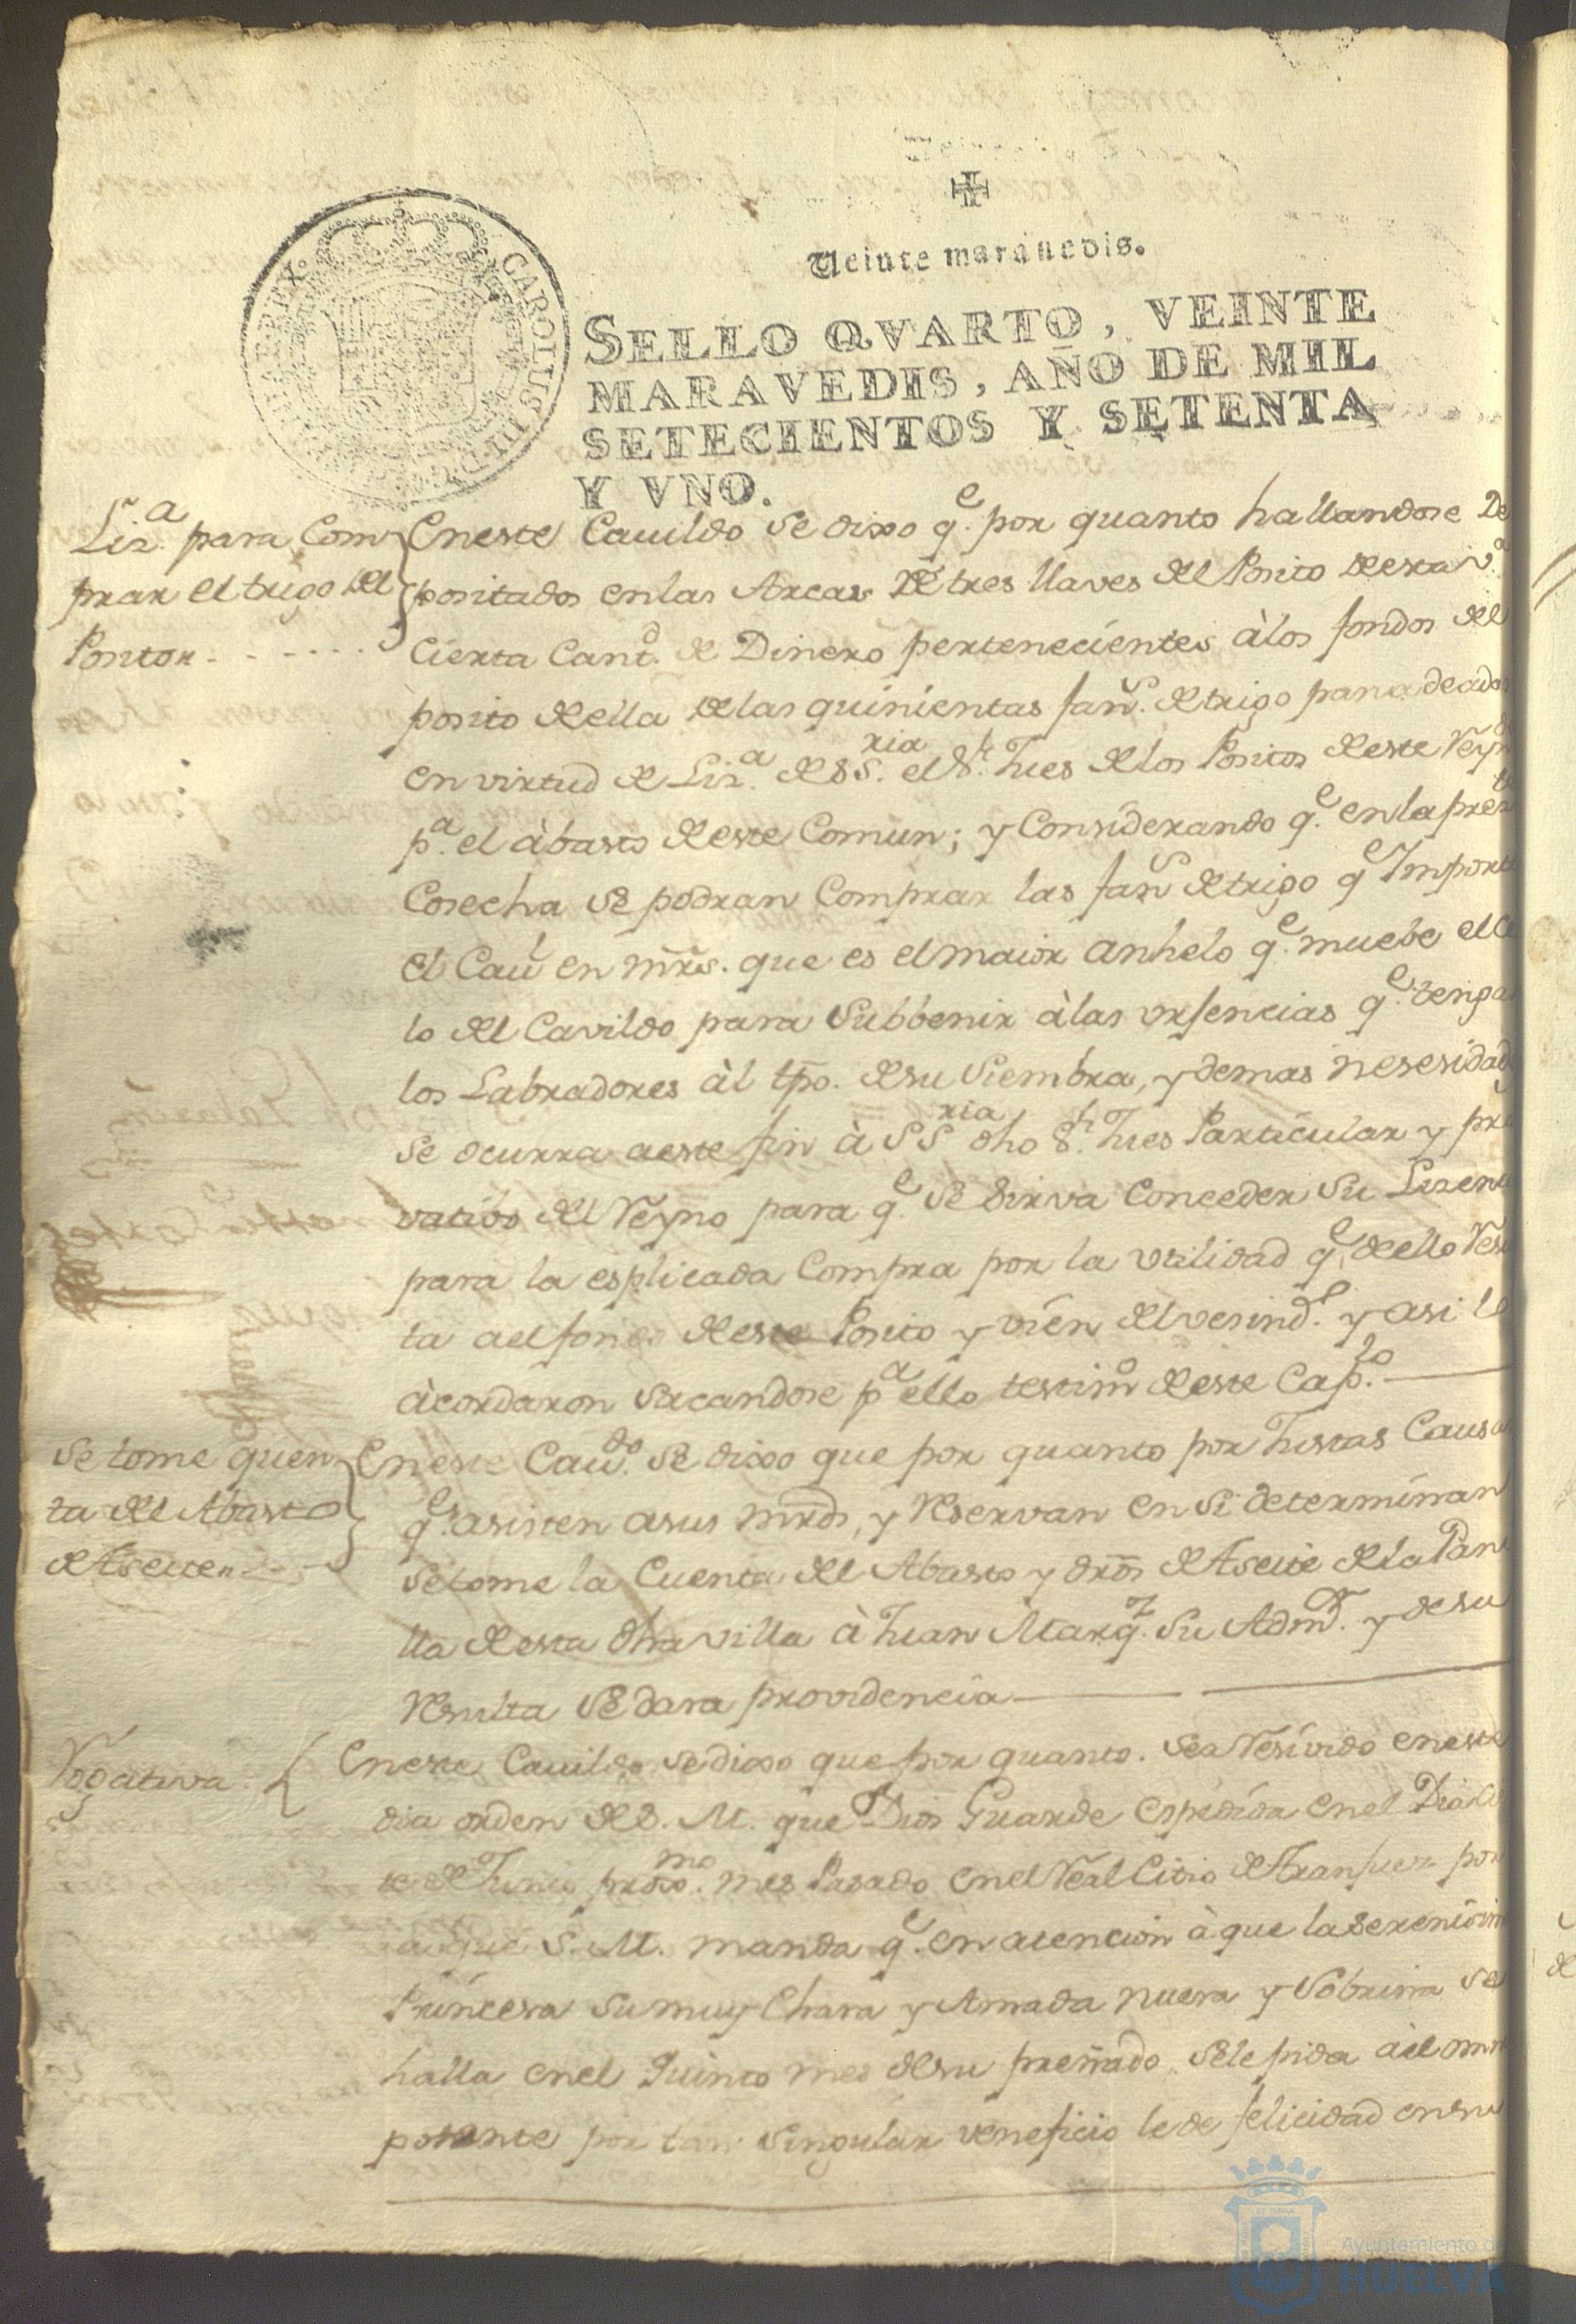 Veinte maravedis.
CAROLUS III D G HISPANIAR REX
SELLO QVARTO, VEINTE
MARAVEDIS, AÑO DE MIL
SETECIENTOS Y SETENTA
Y VNO.
Liz.ª para Com
prar el trigo del
Posito
Eneste Cauildo se dixo q.e por quanto hallandose De
positados enlas Arcas de tres llaves del Posito desta v.ª
Cierta Cant.d de Dinero pertenecientes à los fondos del
posito della de las quinientas fan.s de trigo panadeadas
en virtud de Liz.ª de S S.ria el S.r Jues de los Positos de este Reyno
p.ª el àbasto de este Comun; y Considerando q.e en la pres.te
Cosecha se podran Comprar las fan.s de trigo q.e Importe
el Cau.l en mrs. que es el maior anhelo q.e muebe el Ce
lo del Cavildo para Subbenir à las vrsencias q.e tengan
los Labradores àl tpo. de su Siembra, y demas nesesidades
se ocurra a este fin à S S.ria dho S.r Jues Particular y pri
vatibo del Reyno para q.e se Sirva Conceder su Lizenc
para la esplicada Compra por la vtilidad q.e de ello Resul
ta a el fondo de este Posito y vien del vesind.o y asi lo
àcordaron sacandose p.ª ello testim.o de este Cap.lo
Se tome quen
ta del Abasto
de Aseite
Eneste Cau.do se dixo que por quanto por Justas Causas
q.e asisten a sus mrds, y Reservan en Si determinan
se tome la Cuenta del Abasto y dros de Aseite de la Pani
lla de esta dha villa à Juan Marq.z su Adm.or y de su
Resulta se dara providencia
Rogativa
Eneste Cauildo se dixo que por quanto se a Resivido en este
dia orden de S. M. que Dios Guarde espedida en el Dia
de Junio prox.mo mes Pasado en el Real Citio de Aranjuez por
la que S. M. manda q.e en atencion à que la Serenisima
Princesa su muy Chara y Amada nuera y Sobrina se
halla en el Quinto mes de su preñado se le pida à el omni
potente por tan Singular veneficio le de felicidad en su
Ayuntamiento de
HUELVA